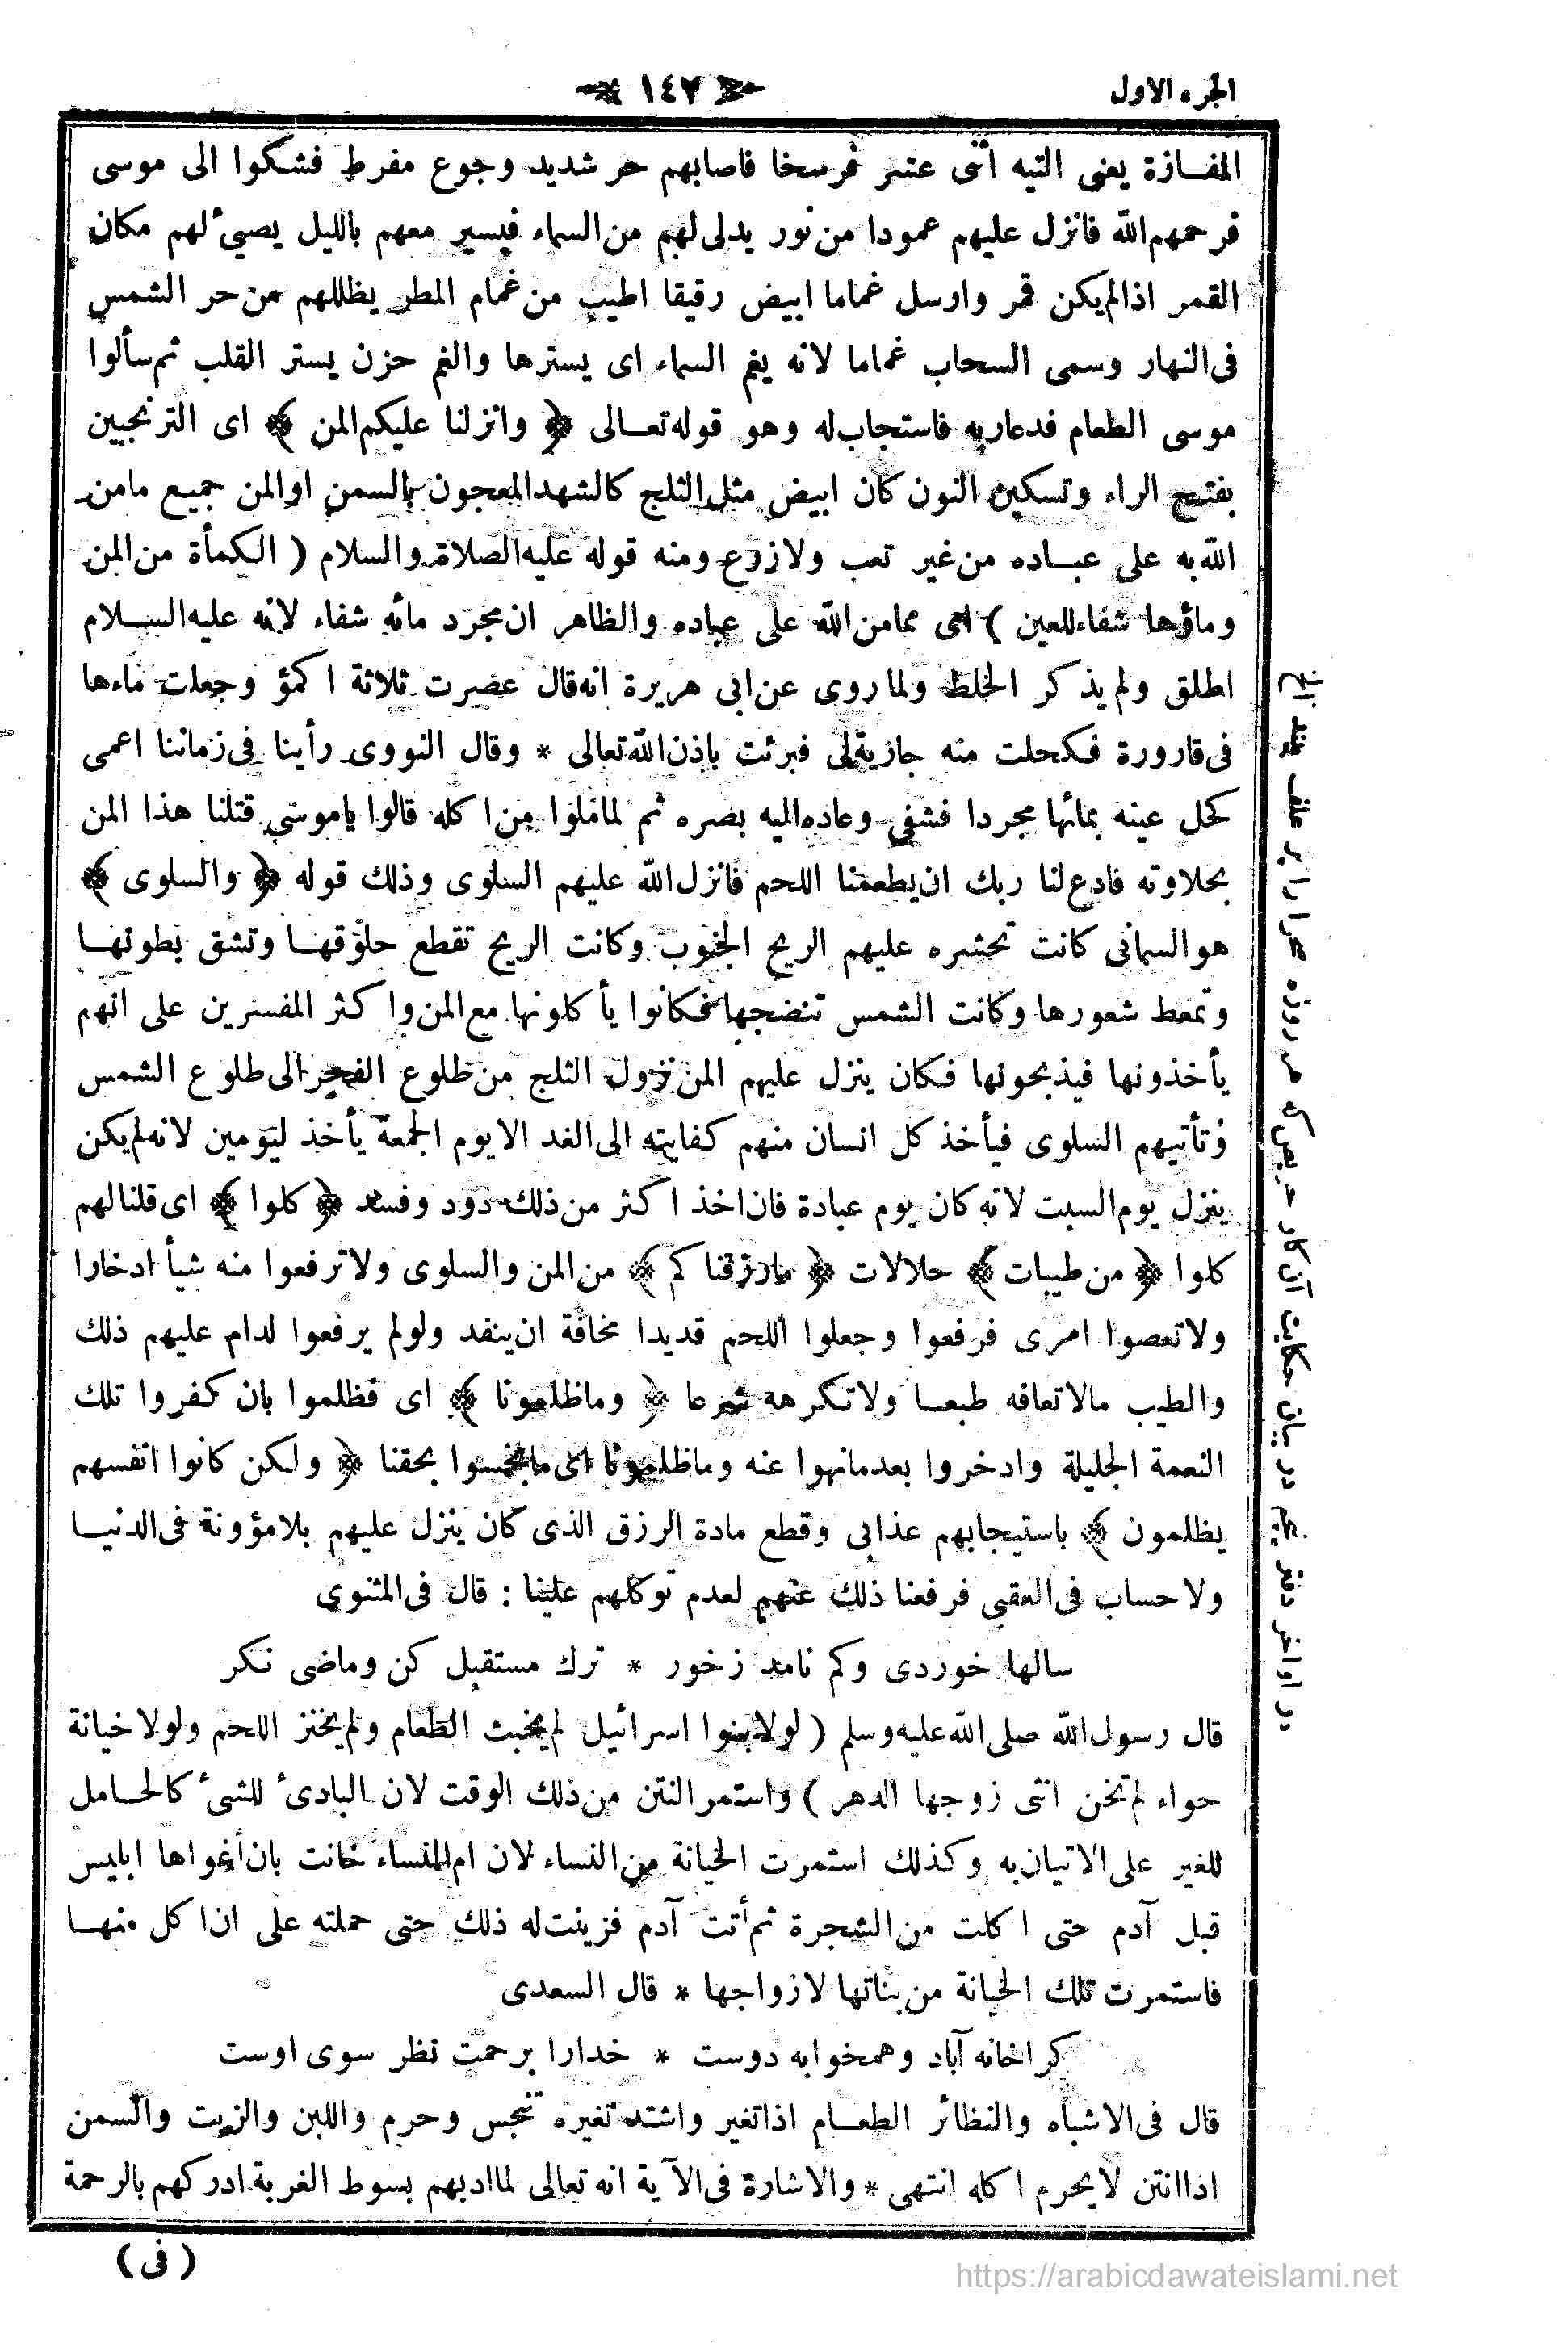 الجزء الاول
١٤٢
المفازة يعنى التيه اثنى عشر فرسخا فاصابهم حر شديد وجوع مفرط فشكوا الى موسى
فرحمهم الله فانزل عليهم عمودا من نور يدلى لهم من السماء فيسير معهم بالليل يضيئ لهم مكان
القمر اذا لم يكن قمر وارسل غماما ابيض رقيقا اطيب من غمام المطر يظللهم من حر الشمس
فى النهار وسمى السحاب غماما لانه يغم السماء اى يسترها والغم حزن يستر القلب ثم سألوا
موسى الطعام فدعا ربه فاستجاب له وهو قوله تعالى ﴿ وانزلنا عليكم المن ﴾ اى الترنجبين
بفتح الراء وتسكين النون كان ابيض مثل الثلج كالشهد المعجون بالسمن او المن جميع مامن
الله به على عباده من غير تعب ولا زرع ومنه قوله عليه الصلاة والسلام ( الكمأة من المن
وماؤها شفاء للعين ) اى مما من الله على عباده والظاهر ان مجرد مائه شفاء لانه عليه السلام
اطلق ولم يذكر الخلط ولما روى عن ابى هريرة انه قال عصرت ثلاثة اكمؤ وجعلت ماءها
فى قارورة فكحلت منه جارية لى فبرئت باذن الله تعالى * وقال النووى رأينا فى زماننا اعمى
كحل عينه بمائها مجردا فشفى وعاد اليه بصره ثم لما ملوا من اكله قالوا يا موسى قتلنا هذا المن
بحلاوته فادع لنا ربك ان يطعمنا اللحم فانزل الله عليهم السلوى وذلك قوله ﴿ والسلوى ﴾
هو السمانى كانت تحشره عليهم الريح الجنوب وكانت الريح تقطع حلوقها وتشق بطونها
وتمعط شعورها وكانت الشمس تنضجها فكانوا يأكلونها مع المن واكثر المفسرين على انهم
يأخذونها فيذبحونها فكان ينزل عليهم المن نزول الثلج من طلوع الفجر الى طلوع الشمس
وتأتيهم السلوى فيأخذ كل انسان منهم كفايته الى الغد الا يوم الجمعة يأخذ ليومين لانه لم يكن
ينزل يوم السبت لانه كان يوم عبادة فان اخذ اكثر من ذلك دود وفسد ﴿ كلوا ﴾ اى قلنا لهم
كلوا ﴿ من طيبات ﴾ حلالات ﴿ مارزقناكم ﴾ من المن والسلوى ولا ترفعوا منه شيأ ادخارا
ولا تعصوا امرى فرفعوا وجعلوا اللحم قديدا مخافة ان ينفد ولو لم يرفعوا لدام عليهم ذلك
والطيب مالا تعافه طبعا ولا تكرهه شرعا ﴿ وما ظلمونا ﴾ اى فظلموا بان كفروا تلك
النعمة الجليلة وادخروا بعد مانهوا عنه وما ظلمونا اى ما بخسوا بحقنا ﴿ ولكن كانوا انفسهم
يظلمون ﴾ باستيجابهم عذابى وقطع مادة الرزق الذى كان ينزل عليهم بلا مؤونة فى الدنيا
ولا حساب فى العقبى فرفعنا ذلك عنهم لعدم توكلهم علينا : قال فى المثنوى
سالها خوردى وكم نامد زخور * ترك مستقبل كن وماضى نكر
قال رسول الله صلى الله عليه وسلم ( لولا بنوا اسرائيل لم يخبث الطعام ولم يخنز اللحم ولولا خيانة
حواء لم تخن انثى زوجها الدهر ) واستمر النتن من ذلك الوقت لان البادئ للشئ كالحامل
للغير على الاتيان به وكذلك استمرت الخيانة من النساء لان ام النساء خانت بان أغواها ابليس
قبل آدم حتى اكلت من الشجرة ثم أتت آدم فزينت له ذلك حتى حملته على ان اكل منها
فاستمرت تلك الخيانة من بناتها لازواجها * قال السعدى
كرا خانه آباد وهمخوابه دوست * خدارا برحمت نظر سوى اوست
قال فى الاشباه والنظائر الطعام اذا تغير واشتد تغيره تنجس وحرم واللبن والزيت والسمن
اذا انتن لا يحرم اكله انتهى * والاشارة فى الآية انه تعالى لما ادبهم بسوط الغربة ادركهم بالرحمة
( فى )
در اواخر دفتر پنجم در بيان حكايت آن كاو حريص كه هر روزه صحرا را پر علف بيند الخ
https://arabicdawateislami.net